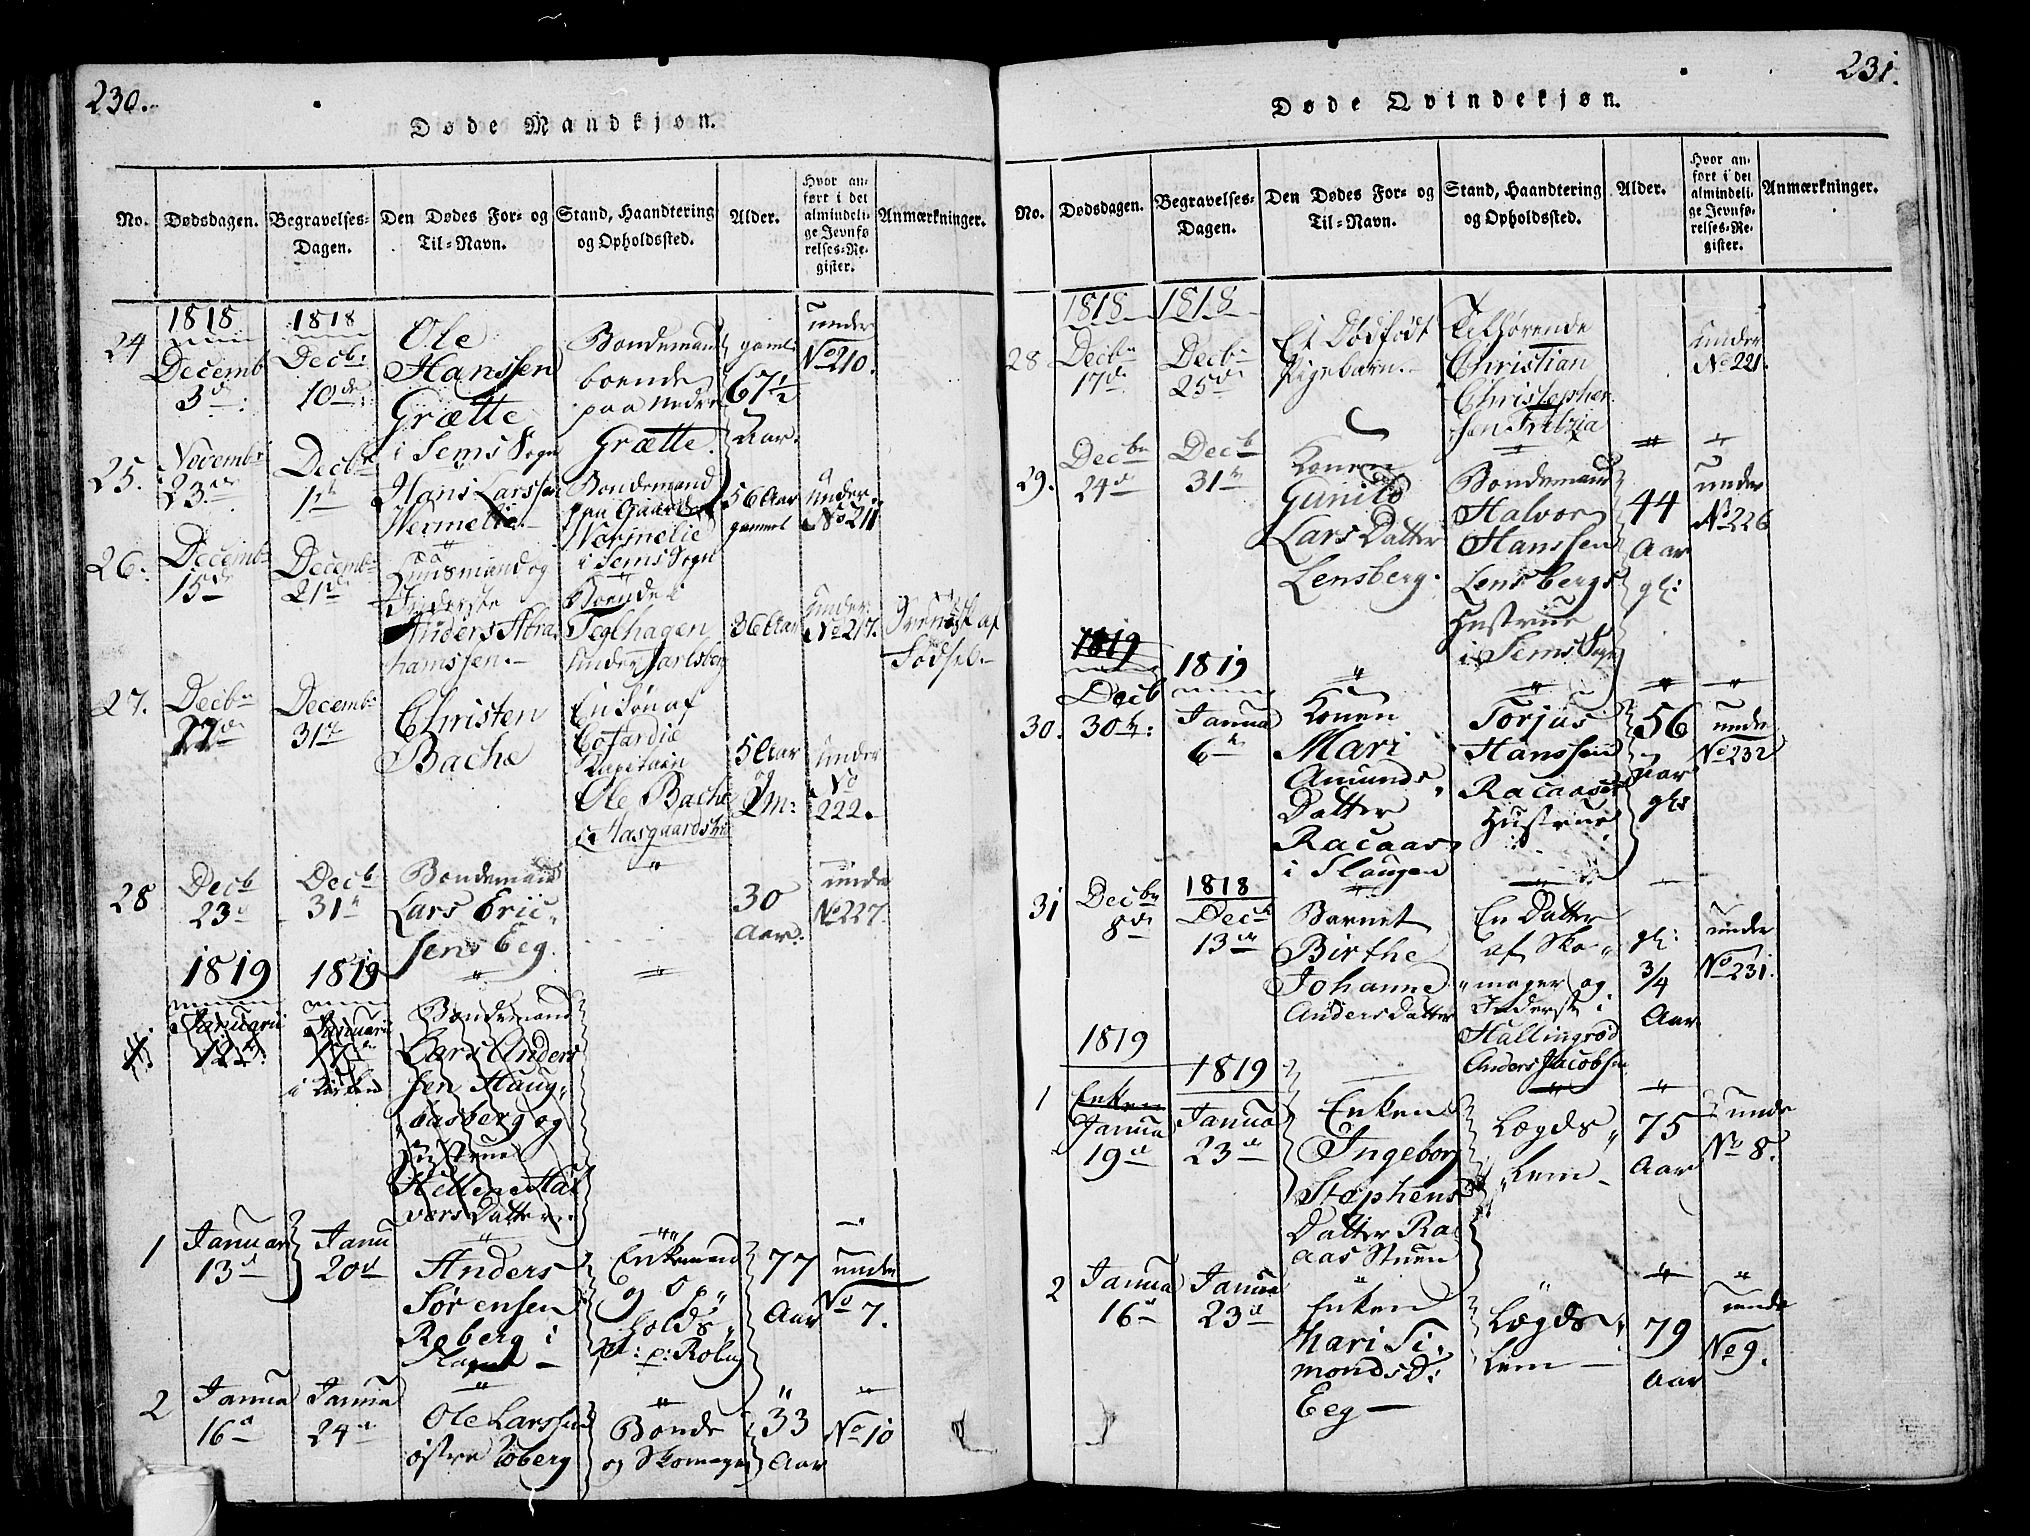 230.
Døde Mandkjøn.
No.
Dødsdagen.
Begravelses-
Dagen.
Den Dødes For- og
Til-Navn.
Stand, Haandtering
og Opholdssted.
Alder.
Hvor an-
ført i det
almindeli-
ge Jevnfø
relses-Re-
gister.
Anmærkninger.
24
1818
Decemb
3d:
1818
Decb:
10de:
Ole
Hanssen
Grætte
i Sems Sogn
Bondemand
boende
paa Nedre
Grætte.
gaml.
67½
Aar.
under
No 210.
25.
Novembr
23de
Decbr
1te
Hans Larssen
Wermelie
Bondemand
paa Gaarden
Wormelie
i Sems Sogn
56 Aar
gammel
under
No 211
26.
Decembr
15de
Decembr
21de
Huusmand og
Inderste
Anders Abra
hamssen.
Boende i
Teglhagen
under Jarlsberg
36 Aar
under
No 217.
Svenyst af
Fødsel
27.
Decbr
22de
Decembr
31te
Christen
Bache
En Søn af
Cofardie
Kapitain
Ole Bache
5 Aar
og
2 M:
under
No
222.
28
Decb
23d
Decb
31te
Bondemand
Lars Eric
sens Eeg.
30
Aar.
unde
No 227.
1819
Januarii
12te
1819
Januarii
17de
i Kirken
Bondemand
Lars Anders
sen Haug-
basberg og
Hustrue
Hellene Hal
vors Datter
1
Januar
13d
Janu
20d
Anders
Sørensen
Roberg i
Slagen
Enkemand
og Op-
holds
K: p: Roby
77
Aar
unde
No 7.
2
Janua
16d
Janua
24d
Ole Larssen
østre Roberg
Bonde
og Skomager
33
Aar
No 10
231.
Døde Qvindekjøn.
No.
Dødsdagen.
Begravelses-
Dagen.
Den Dødes For- og
Til-Navn.
Stand, Haandtering
og Opholdssted.
Alder.
Hvor an-
ført i det
almindeli-
ge Jevnfø-
relses-Re-
gister.
Anmærkninger.
28
1818
Decbr
17de
1818
Decbr
25de
Et Dødfødt
Pigebarn.
Tilhørende
Christian
Christopher
sen Trebzia
under
No 221.
29.
Decbr
24de
Decb
31te
Konen
Gunild
Lars Datter
Lensberg.
Bondemand
Halvor
Hanssen
Lensbergs
Hustrue
i Sems Sogn
44
Aar
gl:
under
No 226
30.
1819
Decb
30te:
1819
Janua
6te
Konen
Mari
Amunds
Datter
Racaas
i Slaugen
Torjus
Hanssen
Racaases
Hustrue
56
Aar
gl:
unde
No 232
31
Decbr
8de
1818
Decb
13de
Barnet
Birthe
Johanne
Anders Datter
En Datter
af Sko-
mager og
Inderste i
Hallingrød
Anders Jacobsen
gl:
3/4
Aar
under
No 231.
1
1819
Enken
Janua
19d
1819
Janua
23d
Enken
Ingeborg
Stephens
Datter Ra
aas Stuen
Lægds
Lem
75
Aar
unde
No 8.
2
Janua
16d
Janua
23d
Enken
Mari Si-
monds D:
Eeg
Lægds
Lem
79
Aar
unde
No 9.